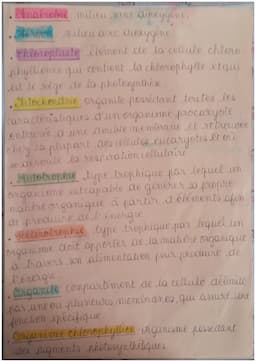 . Anaérobie : milieu sans dioxygène.
. Aérobie : milieu avec dioxygène
. Chloroplaste : élément de la cellule chloro-
phyllienne qui contient la chlorophylle et qui
est le siège de la photosynthèse
. Mitochondrie : organite possédant toutes les
caractéristiques d'un organisme procaryote
entourée d'une double membrane et retrouvée
chez la plupart des cellules eucaryotes et où
se déroule la respiration cellulaire
. Autotrophie : type trophique par lequel un
organisme est capable de générer sa propre
matière organique à partir d'éléments afin
de produire de l'énergie
. Hétérotrophie : type trophique par lequel un
organisme doit apporter de la matière organique
à travers son alimentation pour produire de
l'énergie.
. Organite : compartiment de la cellule délimité
par une ou plusieurs membranes, qui assure une
fonction spécifique.
. Organisme chlorophyllien : organisme possédant
des pigments photosynthétiques.